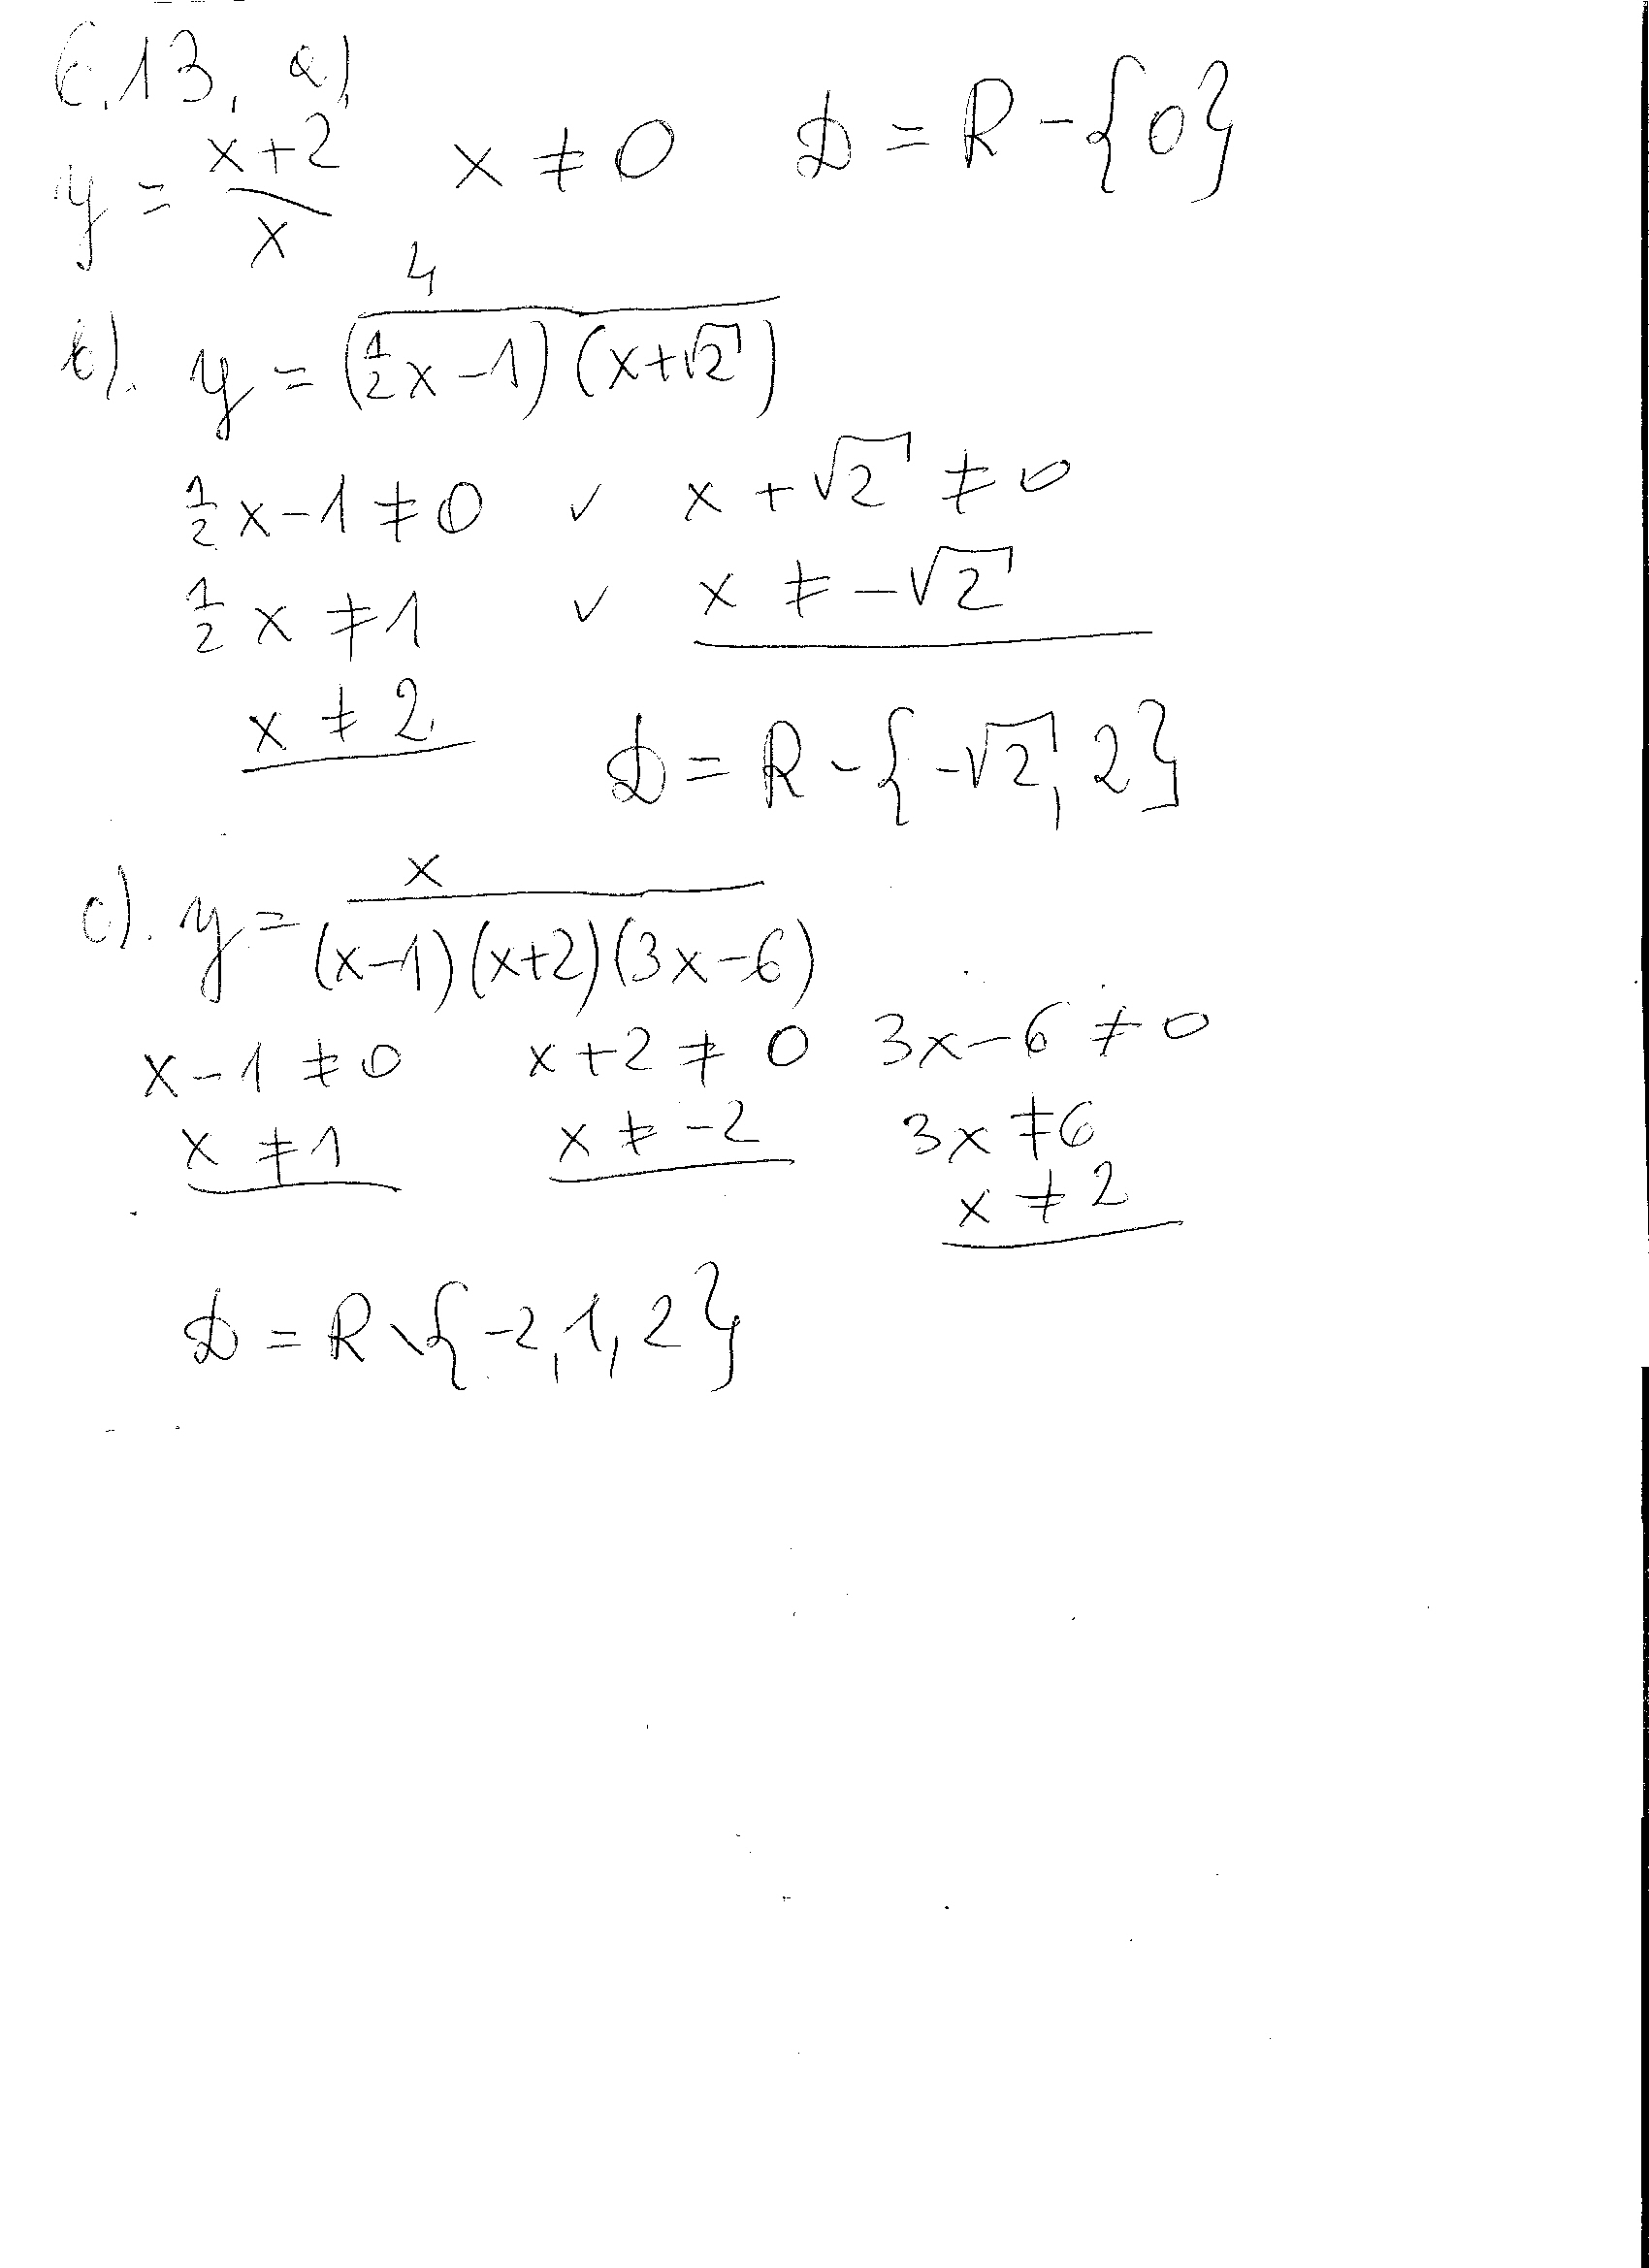 6.13. a).
y = \frac{x+2}{x} x ≠ 0 D = R - {0}
b). y = \frac{4}{(\frac{1}{2}x - 1)(x + √2)}
\frac{1}{2}x - 1 ≠ 0 ∨ x + √2 ≠ 0
\frac{1}{2}x ≠ 1 ∨ x ≠ -√2
x ≠ 2 D = R - {-√2, 2}
c). y = \frac{x}{(x-1)(x+2)(3x-6)}
x - 1 ≠ 0 x + 2 ≠ 0 3x - 6 ≠ 0
x ≠ 1 x ≠ -2 3x ≠ 6
x ≠ 2
D = R \ {-2, 1, 2}